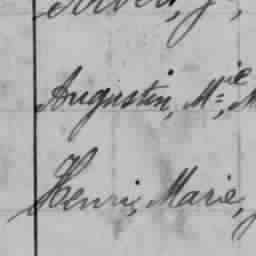 Augustin, M.ie,
Henri, Marie,